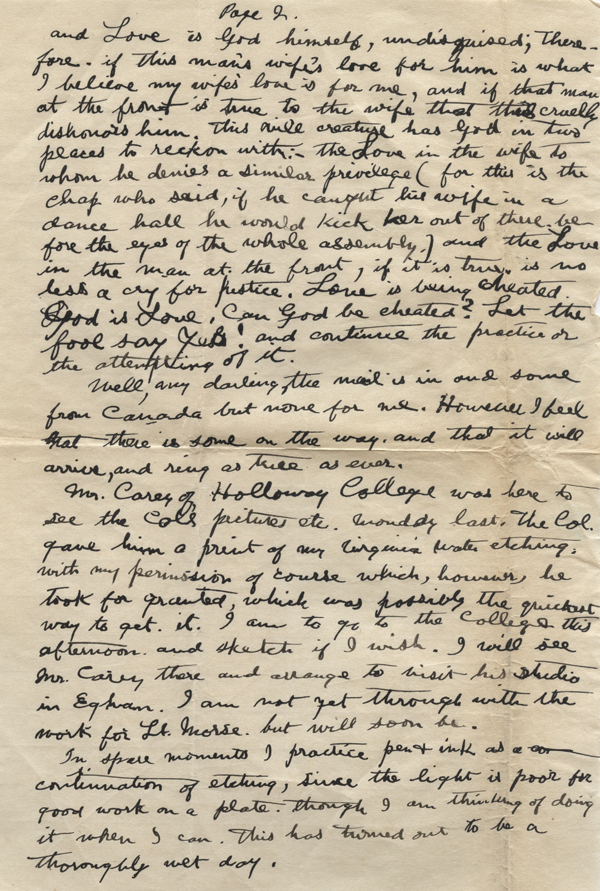 Page 2.
and Love is God himself, undisguised; There-
fore. if this man's wife's love for him is what
I believe my wife's love is for me, and if that man
at the front is true to the wife that thus cruelly
dishonors him. This vile creature has God in two
places to reckon with:- the Love in the wife to
whom he denies a similar privilege (for this is the
chap who said, if he caught his wife in a
dance hall he would kick her out of there be
fore the eyes of the whole assembly,) and the Love
in the man at the front, if it is true, is no
less a cry for Justice. Love is being cheated.
God is Love, Can God be cheated? Let the
fool say Yes! and continue the practice or
the attempting of it.
Well, my darling, the mail is in and some
from Canada but none for me. However I feel
that there is some on the way. and that it will
arrive, and ring as true as ever.
Mr. Carey of Holloway College was here to
see the Cols pictures etc. Monday last. The Col.
gave him a print of my Virginia Water etching,
with my permission of course which, however, he
took for granted, which was possibly the quickest
way to get it. I am to go to the College this
afternoon. and sketch if I wish. I will see
Mr. Carey there and arrange to visit his studio
in Egham. I am not yet through with the
work for Lt. Morse. but will soon be.
In spare moments I practice pen & ink as a con
continuation of etching, since the light is poor for
good work on a plate. though I am thinking of doing
it when I can. This has turned out to be a
thoroughly wet day.